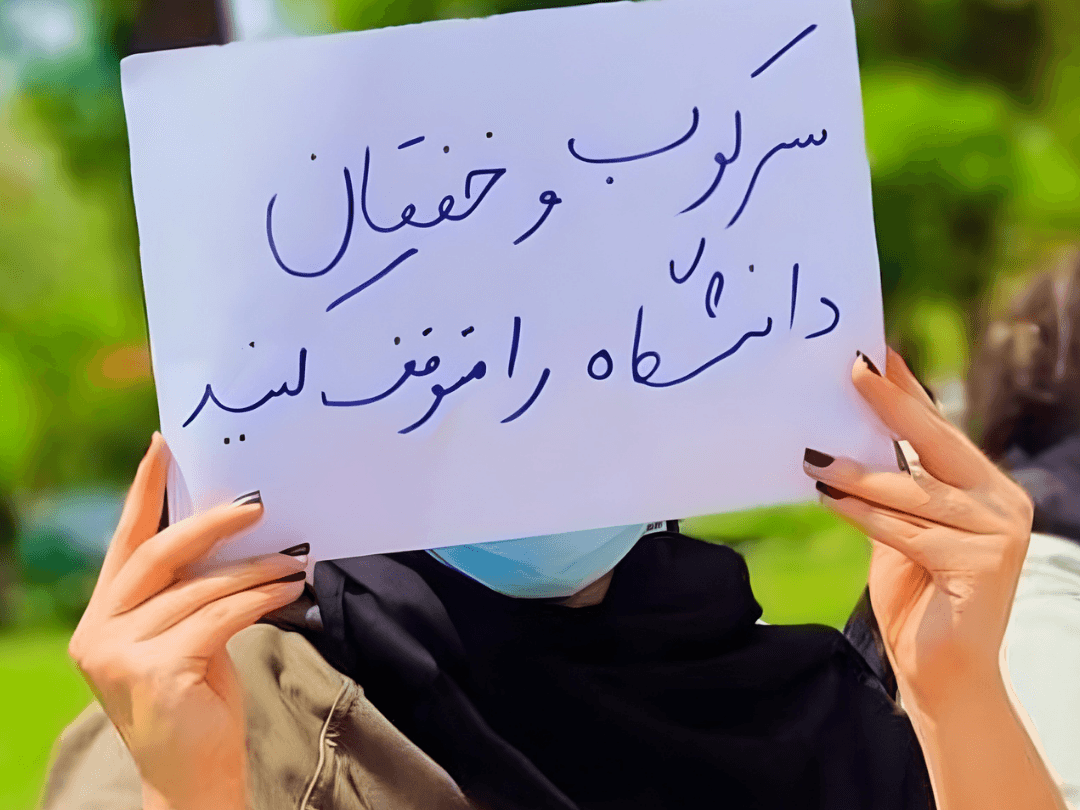 سرکوب و خفقان
دانشگاه را متوقف کنید